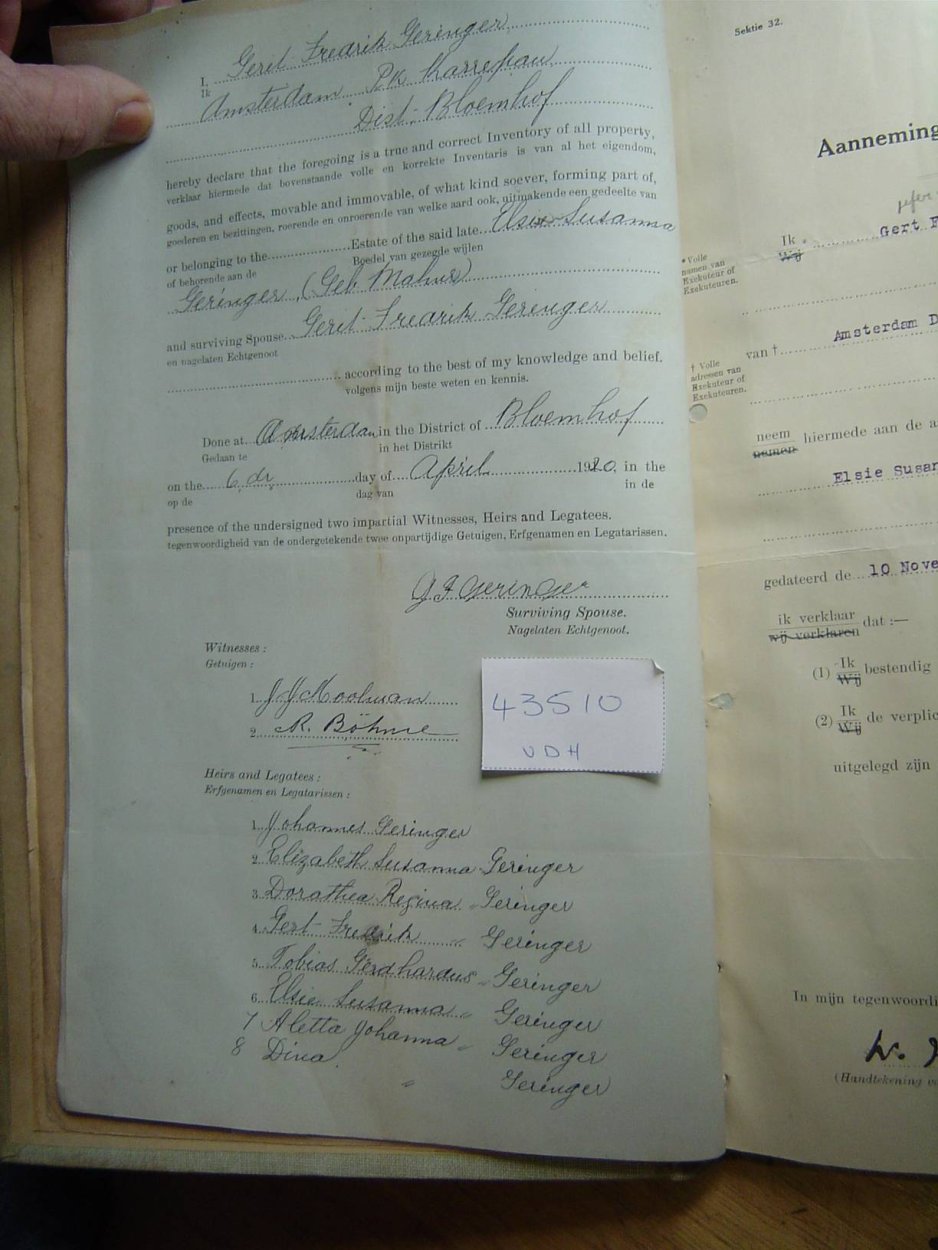 I, Gerit Fredrik Geringer
Ik
Amsterdam PK Karrepan
Dist. Bloemhof
hereby declare that the foregoing is a true and correct Inventory of all property,
verklaar hiermede dat bovenstaande volle en korrekte Inventaris is van al het eigendom,
goods, and effects, movable and immovable, of what kind soever, forming part of,
goederen en bezittingen, roerende en onroerende van welke aard ook, uitmakende een gedeelte van
or belonging to the Estate of the said late Elsie Susanna
of behorende aan de Boedel van gezegde wijlen
Geringer, (Geb
and surviving Spouse Gerit Fredrik Geringer
en nagelaten Echtgenoot
according to the best of my knowledge and belief.
volgens mijn beste weten en kennis.
Done at Amsterdam in the District of Bloemhof
Gedaan te in het Distrikt
on the 6 de day of April 1920, in the
op de dag van in de
presence of the undersigned two impartial Witnesses, Heirs and Legatees.
tegenwoordigheid van de ondergetekende twee onpartijdige Getuigen, Erfgenamen en Legatarissen.
G F Geringer
Surviving Spouse.
Nagelaten Echtgenoot.
Witnesses :
Getuigen :
1. J J Moolman
2. R. Böhme
43510
VDH
Heirs and Legatees :
Erfgenamen en Legatarissen :
1. Johannes Geringer
2. Elizabeth Susanna Geringer
3. Dorathea Regina " Geringer
4. Gert Fredrik " Geringer
5. Tobias Gerdhardus " Geringer
6. Elsie Susanna " Geringer
7 Aletta Johanna " Geringer
8 Dina " Geringer
Sektie 32.
Aanneming
Ik
Wij
* Volle
namen van
Exekuteur of
Exekuteuren.
Gert F
van † Amsterdam D
† Volle
adressen van
Exekuteur of
Exekuteuren.
neem
nemen
hiermede aan de a
Elsie Susan
gedateerd de 10 Nove
ik verklaar
wij verklaren
dat :—
(1) Ik
Wij
bestendig
(2) Ik
Wij
de verplic
uitgelegd zijn
In mijn tegenwoordi
(Handtekening v